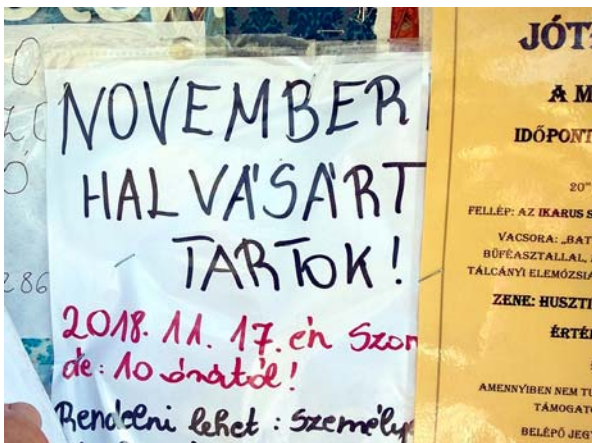 NOVEMBER
HALVÁSÁRT
TARTOK!
2018. 11. 17. én Szom
de: 10 órától!
Rendelni lehet: Személy
286
JÓT
A M
IDŐPONT
20"
FELLÉP: AZ IKARUS S
VACSORA: „BAT
BÜFÉASZTALLAL,
TÁLCÁNYI ELEMÓZSIA
ZENE: HUSZTI
ÉRTÉ
AMENNYIBEN NEM TU
TÁMOGAT
BELÉPŐ JEGY